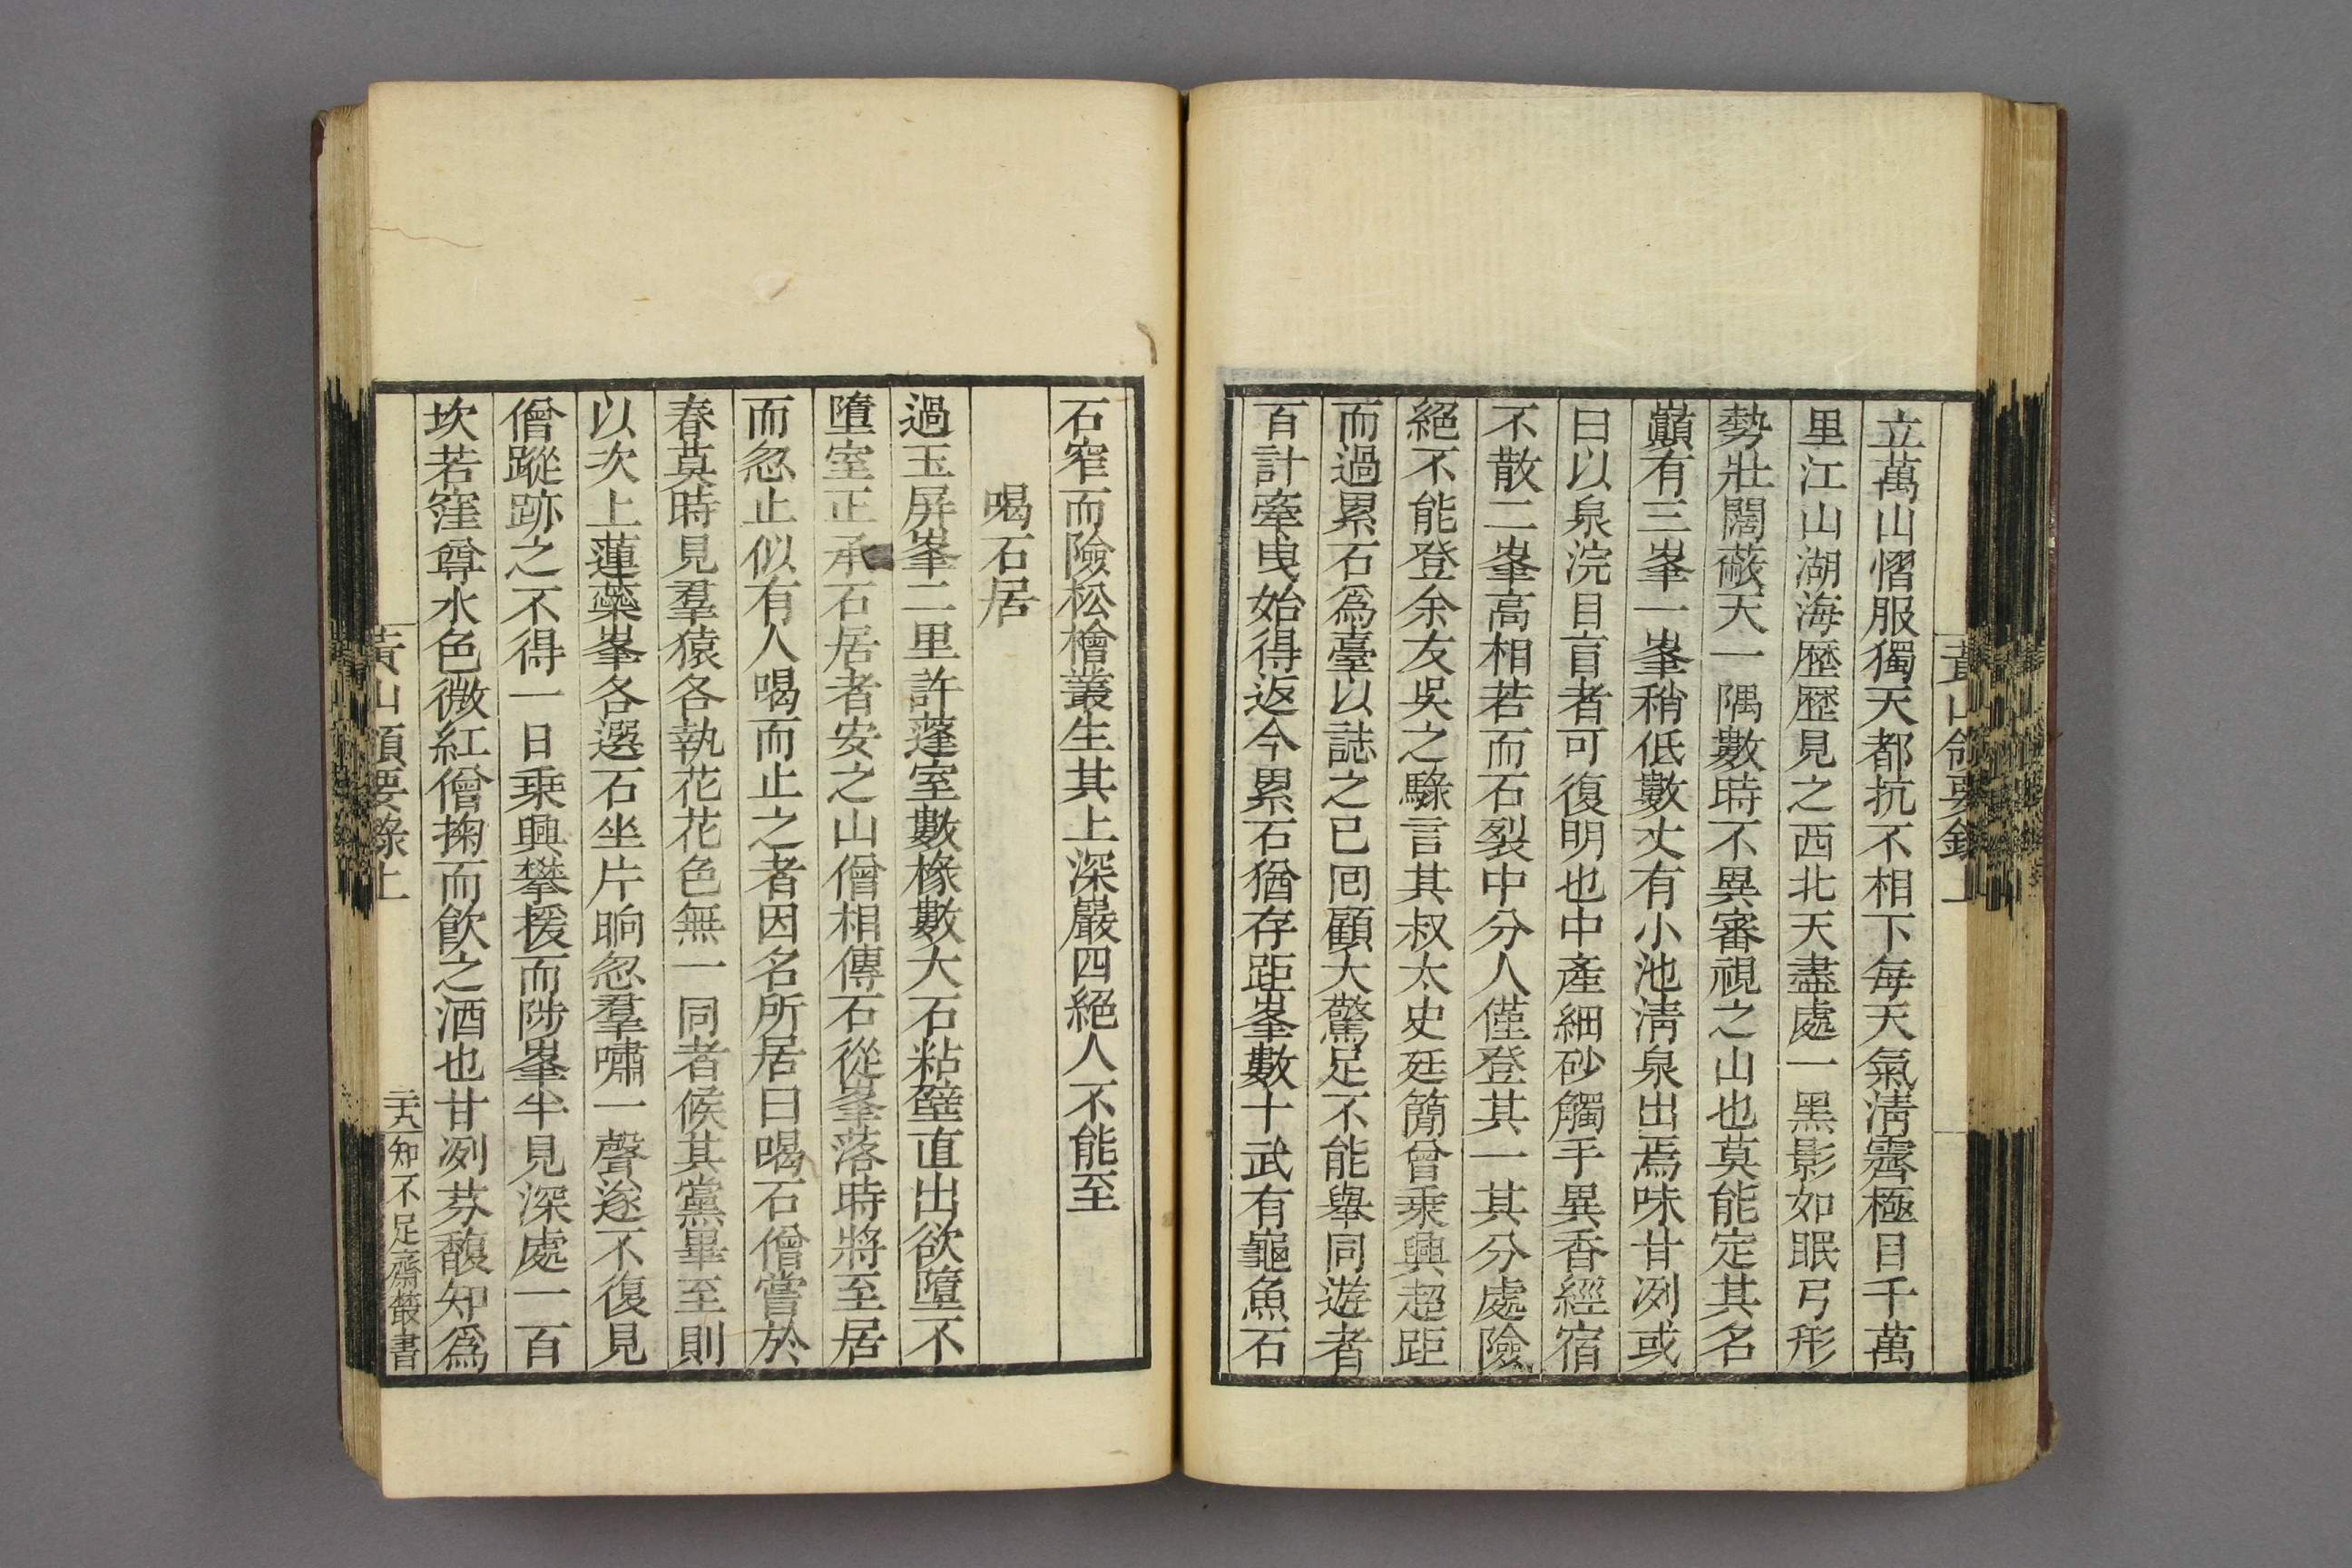 黃山領要錄上
立萬山慴服獨天都抗不相下每天氣淸霽極目千萬
里江山湖海歷歷見之西北天盡處一黑影如眠弓形
勢壯闊蔽天一隅數時不異審視之山也莫能定其名
巓有三峯一峯稍低數丈有小池淸泉出焉味甘冽或
曰以泉浣目盲者可復明也中產細砂觸手異香經宿
不散二峯高相若而石裂中分人僅登其一其分處險
絕不能登余友吳之騄言其叔太史廷簡曾乗興超距
而過累石爲臺以誌之已囘顧大驚足不能舉同遊者
百計牽曳始得返今累石猶存距峯數十武有龜魚石
石窄而險松檜叢生其上深巖四絕人不能至
喝石居
過玉屏峯二里許蓬室數椽數大石粘壁直出欲墮不
墮室正承石居者安之山僧相傳石從峯落時將至居
而忽止似有人喝而止之者因名所居曰喝石僧嘗於
春莫時見羣猿各執花花色無一同者候其黨畢至則
以次上蓮蘂峯各選石坐片晌忽羣嘯一聲遂不復見
僧蹤跡之不得一日乗興攀援而陟峯半見深處一百
坎若窪尊水色微紅僧掬而飮之酒也甘冽芬馥知爲
黃山領要錄上
二十八
知不足齋叢書